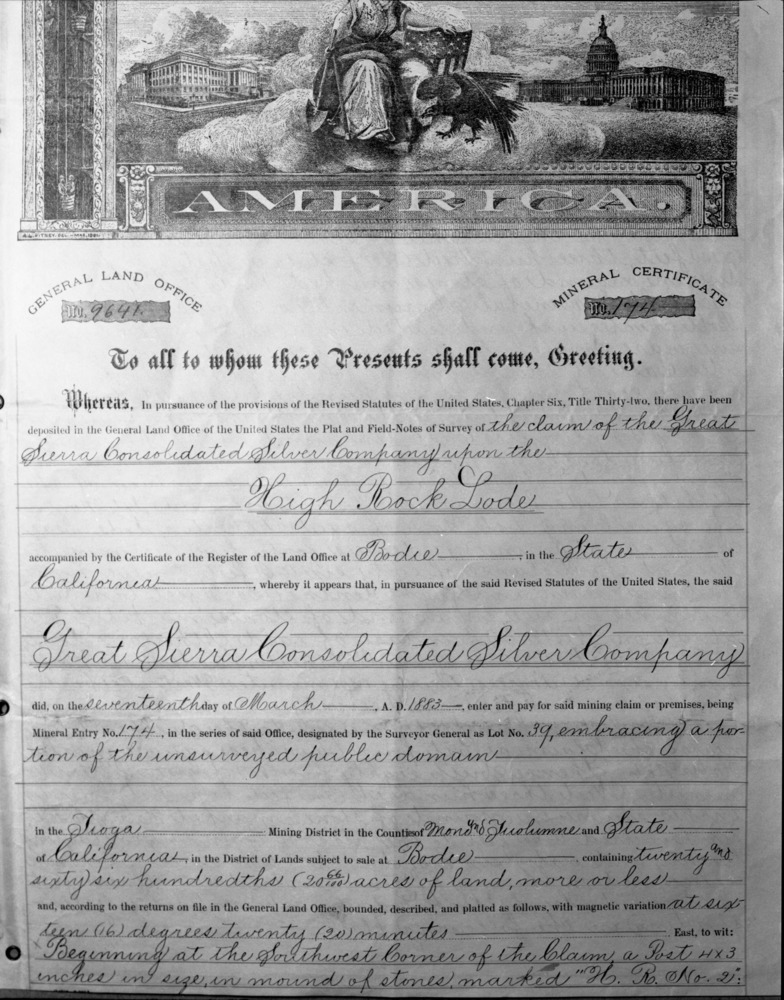 AMERICA.
GENERAL LAND OFFICE
No. 9641.
MINERAL CERTIFICATE
No. 174.
To all to whom these Presents shall come, Greeting.
Whereas, In pursuance of the provisions of the Revised Statutes of the United States, Chapter Six, Title Thirty-two, there have been
deposited in the General Land Office of the United States the Plat and Field-Notes of Survey of the claim of the Great
Sierra Consolidated Silver Company upon the
High Rock Lode
accompanied by the Certificate of the Register of the Land Office at Bodie, in the State of
California, whereby it appears that, in pursuance of the said Revised Statutes of the United States, the said
Great Sierra Consolidated Silver Company
did, on the seventeenth day of March, A. D. 1883, enter and pay for said mining claim or premises, being
Mineral Entry No. 174, in the series of said Office, designated by the Surveyor General as Lot No. 39, embracing a por-
tion of the unsurveyed public domain
in the Tioga Mining District in the Counties of Mono and Tuolumne and State
of California, in the District of Lands subject to sale at Bodie, containing twenty and
sixty six hundredths (20 66/100) acres of land, more or less
and, according to the returns on file in the General Land Office, bounded, described, and platted as follows, with magnetic variation at six-
teen (16) degrees twenty (20) minutes East, to wit:
Beginning at the Southwest Corner of the Claim, a Post 4x3
inches in size, in mound of stones, marked "H. R. No. 2":